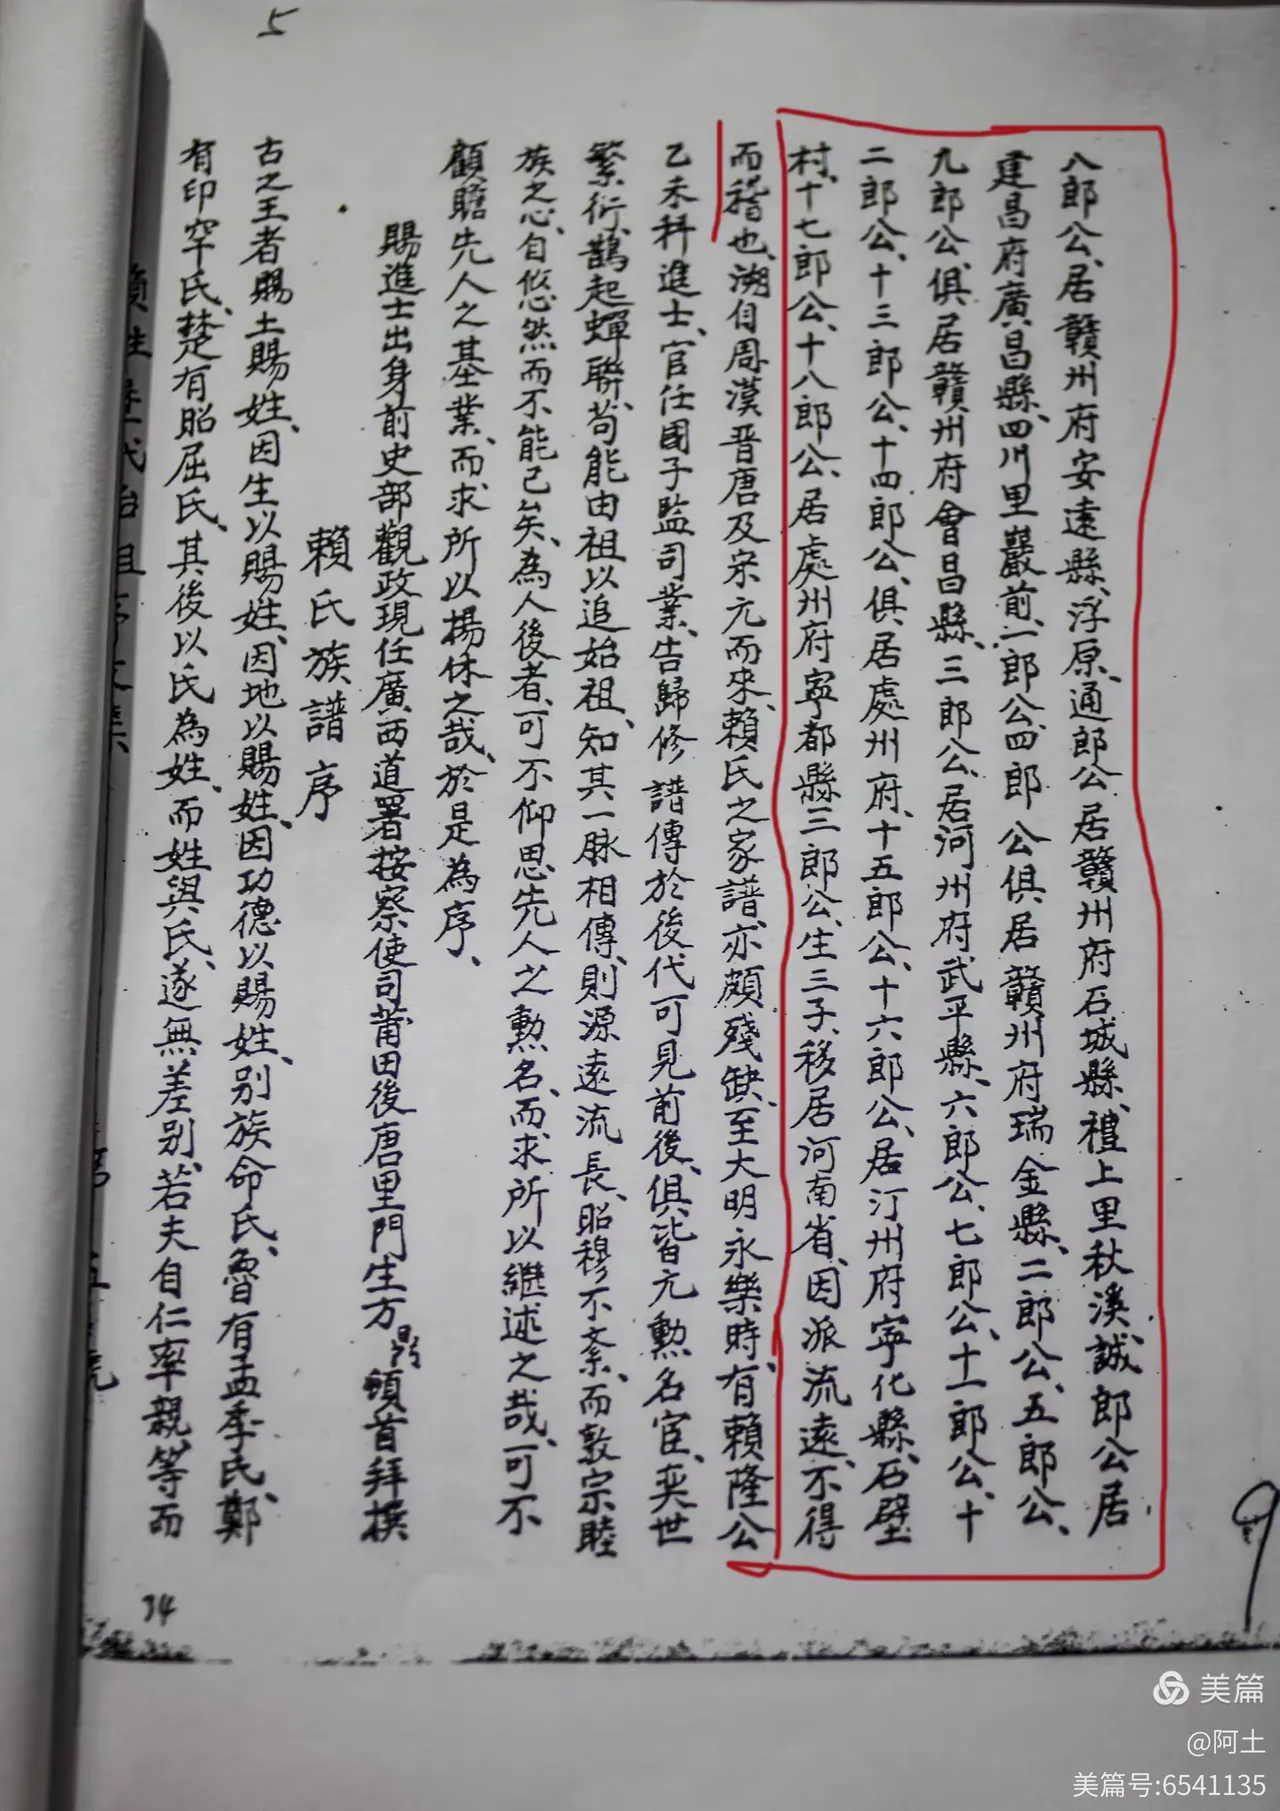 5
八郎公、居贛州府安遠縣、浮原、通郎公居贛州府石城縣、禮上里秋溪誠郎公居
建昌府廣昌縣、四川里巖前、一郎公、四郎公俱居贛州府瑞金縣、二郎公、五郎公、
九郎公、俱居贛州府會昌縣、三郎公、居河州府武平縣、六郎公、七郎公、十一郎公、十
二郎公、十三郎公、十四郎公、俱居處州府、十五郎公、十六郎公、居汀州府寧化縣、石壁
村、十七郎公、十八郎公、居處州府寧都縣三郎公、生三子、移居河南省、因派流遠、不得
而稽也、溯自周漢晋唐及宋元而來、賴氏之家譜、亦頗殘缺、至大明永樂時、有賴隆公
乙未科進士、官任國子監司業、告歸修譜傳於後代可見前後、俱皆元勳名宦、奕世
繁衍、鵲起蟬聯、苟能由祖以追始祖、知其一脉相傳、則源遠流長、昭穆不紊、而敦宗睦
族之心、自悠然而不能已矣、為人後者、可不仰思先人之勳名、而求所以繼述之哉、可不
顧瞻先人之基業、而求所以揚休之哉、於是為序、
賜進士出身前史部觀政現任廣西道署按察使司莆田後唐里門生方 頓首拜撰
賴氏族譜序
古之王者賜土賜姓、因生以賜姓、因地以賜姓、因功德以賜姓、别族命氏、魯有孟季氏、鄭
有印罕氏、楚有昭屈氏、其後以氏為姓、而姓與氏、遂無差别、若夫自仁率親、等而
34
9
美篇
@阿土
美篇号:6541135